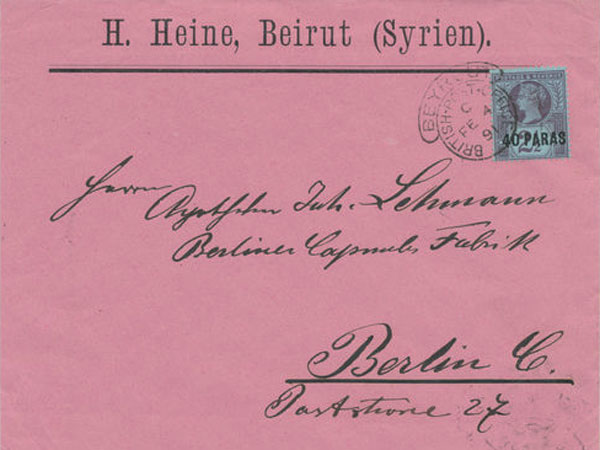 H. Heine, Beirut (Syrien).
BEYROUT
BRITISH POST OFFICE
C
FE 4
91
POSTAGE & REVENUE
40 PARAS
2½
Herrn
Joh. Lehmann
Berliner Capsules Fabrik
Berlin C.
27